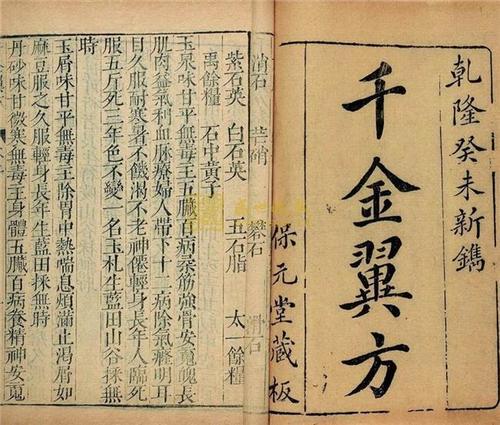 乾隆癸未新鐫
千金翼方
保元堂藏板
消石 芒硝 礬石 滑石
紫石英 白石英 五石脂 太一餘糧
禹餘糧 石中黃子
玉泉味甘平無毒主五臟百病柔筋強骨安魂魄長
肌肉益氣利血脉療婦人帶下十二病除氣癃明耳
目久服耐寒暑不饑渴不老神僊輕身長年人臨死
服五斤死三年色不變一名玉札生藍田山谷採無
時
玉屑味甘平無毒主除胃中熱喘息煩滿止渴屑如
麻豆服之久服輕身長年生藍田採無時
丹砂味甘微寒無毒主身體五臟百病養精神安䰟